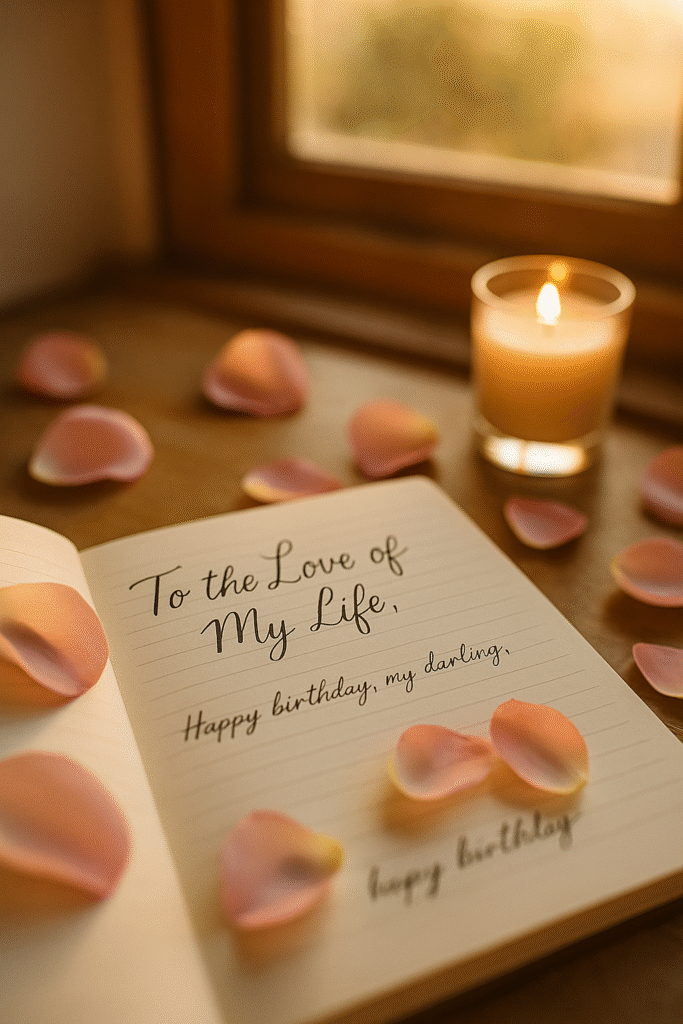 To the Love of
My Life,
Happy birthday, my darling,
hapy birthday